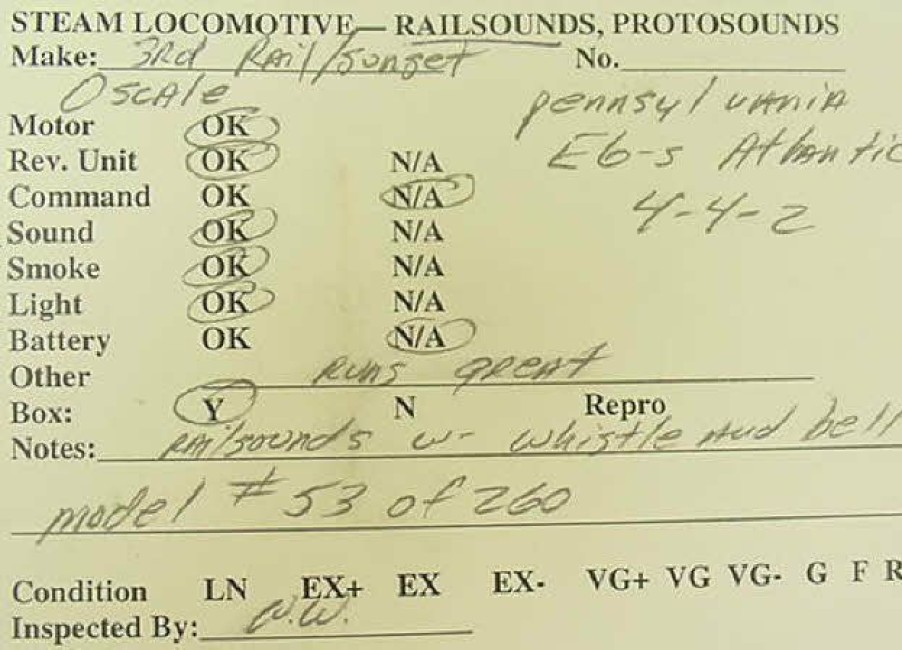 STEAM LOCOMOTIVE— RAILSOUNDS, PROTOSOUNDS
Make: 3Rd Rail/Sunset No.
O SCAlE pennsylvania
Motor OK
E6-s Atlantic
Rev. Unit OK N/A
Command OK N/A
4-4-2
Sound OK N/A
Smoke OK N/A
Light OK N/A
Battery OK N/A
Other Runs great
Box: Y N Repro
Notes: Railsounds w- whistle and bell
model # 53 of 260
Condition LN EX+ EX EX- VG+ VG VG- G F R
Inspected By: W.W.